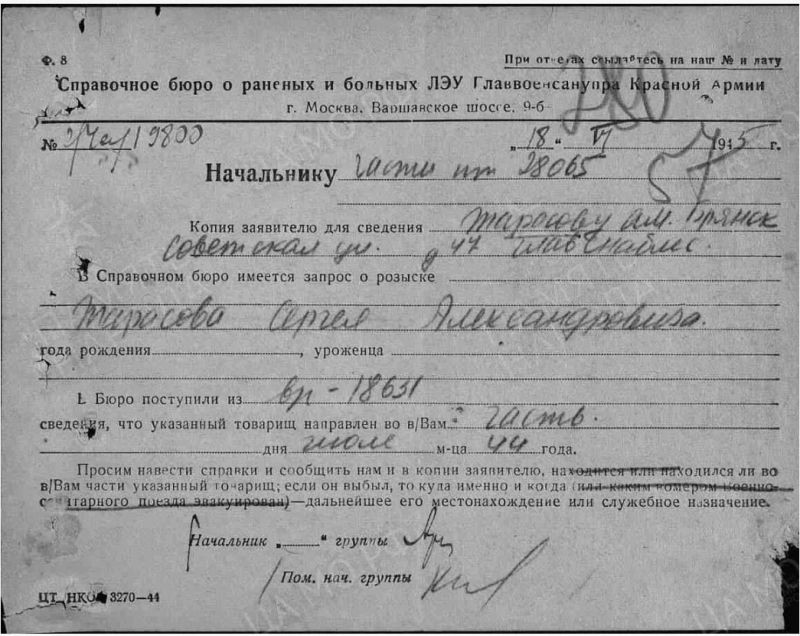 Ф. 8
При ответах ссылайтесь на наш № и дату
Справочное бюро о раненых и больных ЛЭУ Главвоенсанупра Красной Армии
г. Москва, Варшавское шоссе, 9-б
280
№ 19800 „18“ VI 1945 г.
57
Начальнику части пп 28065
Копия заявителю для сведения Тарасову А.М. Брянск
Советская ул. д 47
В Справочном бюро имеется запрос о розыске
Тарасова Сергея Александровича.
года рождения , уроженца
В Бюро поступили из вр - 18631
сведения, что указанный товарищ направлен во в/Вам часть.
дня июле м-ца 44 года.
Просим навести справки и сообщить нам и в копии заявителю, находится или находился ли во
в/Вам части указанный товарищ; если он выбыл, то куда именно и когда (или каким номером Военно-
санитарного поезда эвакуирован)—дальнейшее его местонахождение или служебное назначение.
Начальник „ “ группы
Пом. нач. группы
ЦТ НКО 3270—44